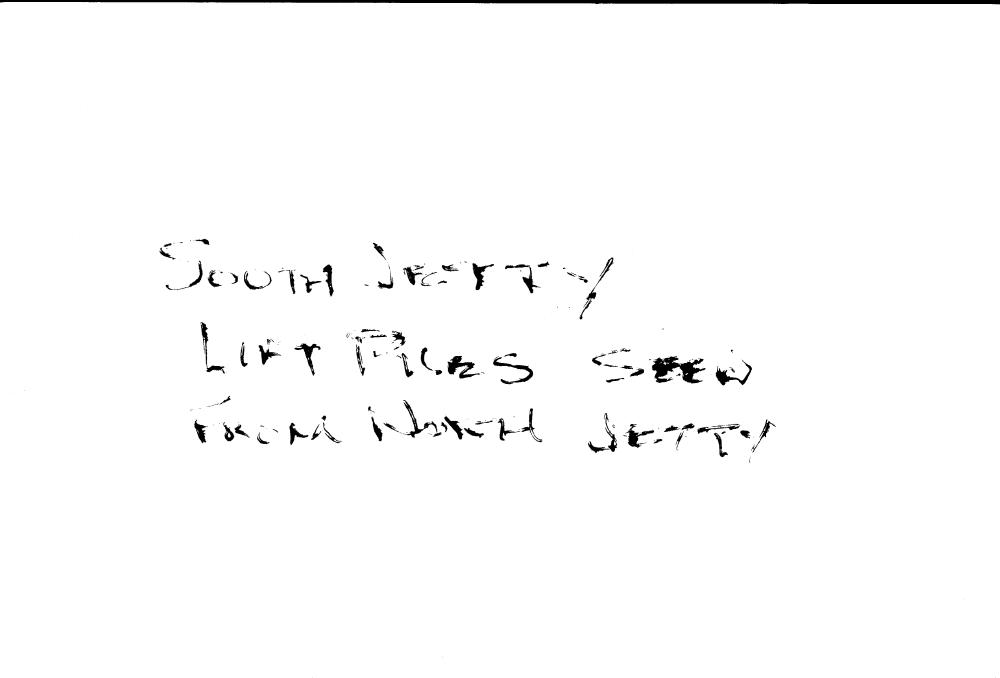 SOUTH JETTY
LIFT PILES SEEN
FROM NORTH JETTY